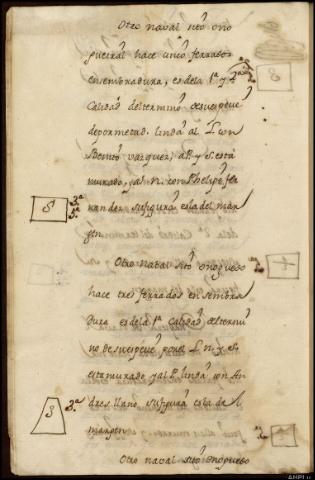 Otro naval sito ono
pueiral hace cinco ferrados
en sembradura, es dela 1ª y 2ª
Calidad del termino
de por metad. linda al L. con
Benito vazquez, al P. y S. está
murado, y al N. con Phelipe fer
nandez su figura es la del mar
gen
5 3ª
Otro naval sito
hace tres ferrados en sembra
dura es dela 1ª Calidad del termi
no de por el L. N. y S.
esta murado y al P. linda con An
dres llano, su figura es la del
margen
3 3ª
Otro naval sito